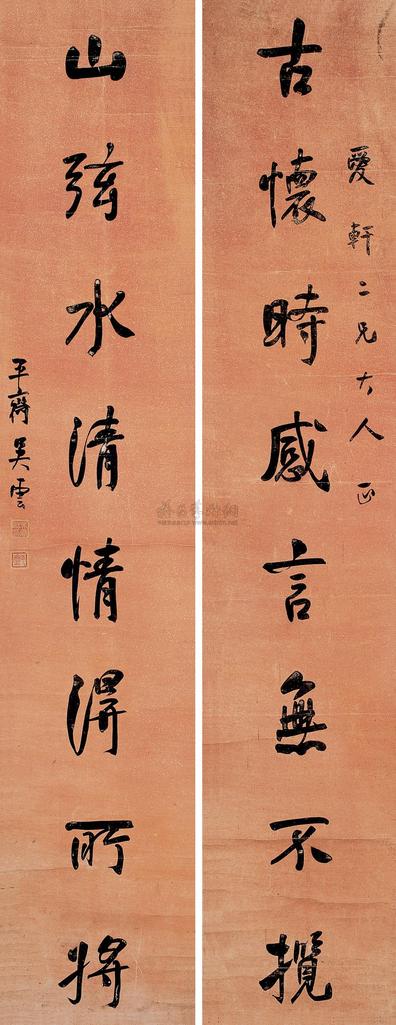 愛軒二兄大人正
古懷時感言無不攬
山弦水清情得所將
平齋吳雲